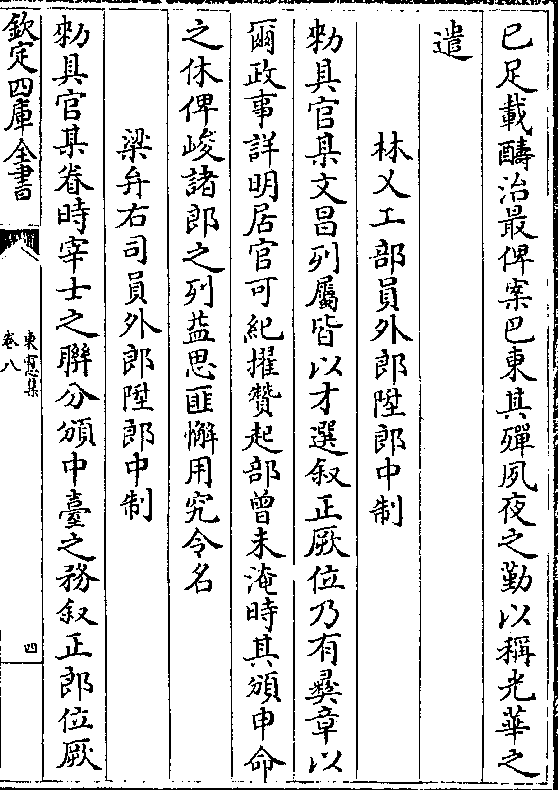 已足載醻治最俾案巴東其殫夙夜之勤以稱光華之
遣
林乂工部員外郎陞郎中制
勑具官某文昌列屬皆以才選叙正厥位乃有彛章以
爾政事詳明居官可紀擢贊起部曾未淹時其頒申命
之休俾峻諸郎之列益思匪懈用究令名
梁弁右司員外郎陞郎中制
勑具官某眷時宰士之聯分頒中臺之務叙正郎位厥
欽定四庫全書
東窻集
卷八
四